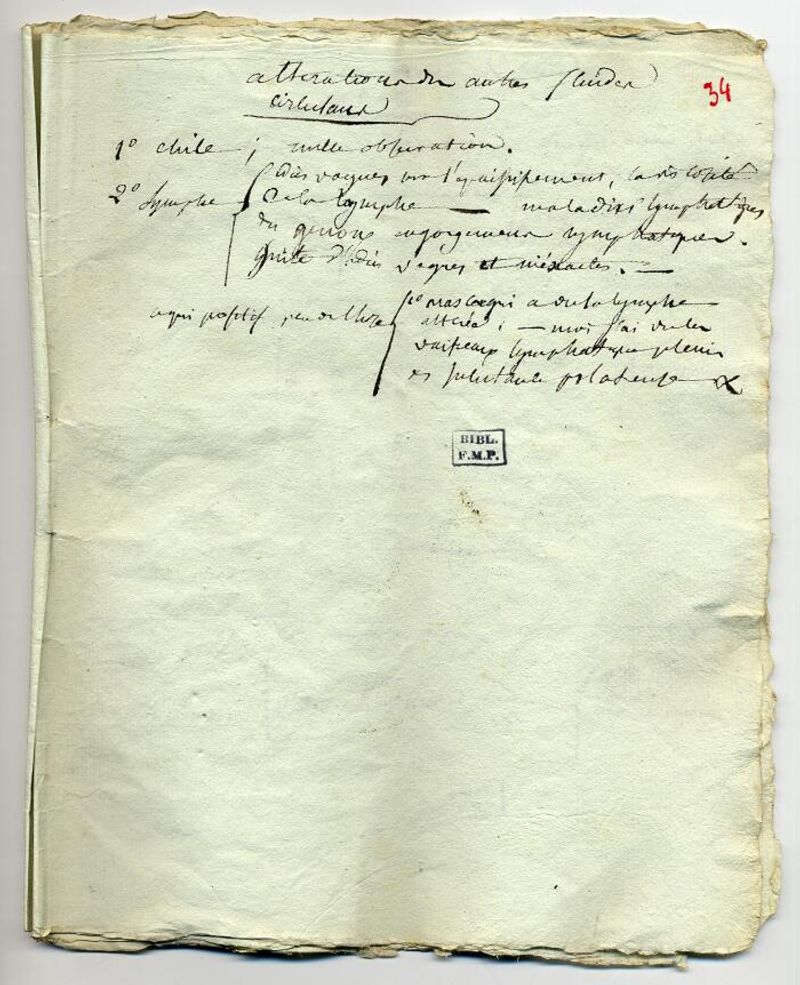 altérations des autres fluides
circulans
34
1° chile ; nulle observation.
2° lymphe
idées vagues sur l'épaississement, la viscosité
de la lymphe — maladies lymphatiques
du genou engorgemens lymphatiques.
suite d'idées vagues et inéxactes. —
a qui positif peu de chose
1° mascagni a vu la lymphe
altérée ; — moi j'ai vu les
vaisseaux lymphatiques pleins
substance
BIBL.
F.M.P.